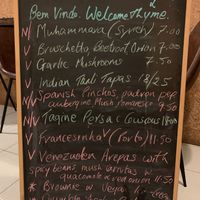 Bem Vindo. Welcome Thyme.
V Muhammara (Syria) 7.00
V Bruschetta Beetroot Onion 7.00
V Garlic Mushrooms 7.50
Indian Thali Tapas 18/25
V Spanish Pinchos, padron pep
aubergine Mush romanesco 9.50
V Tagine Persa Couscous
V Francesinha (Porto) 11.50
V Venezuelen Arepas with
spicy beans, mush
guacamole + red onion 11.50
* Brownie w